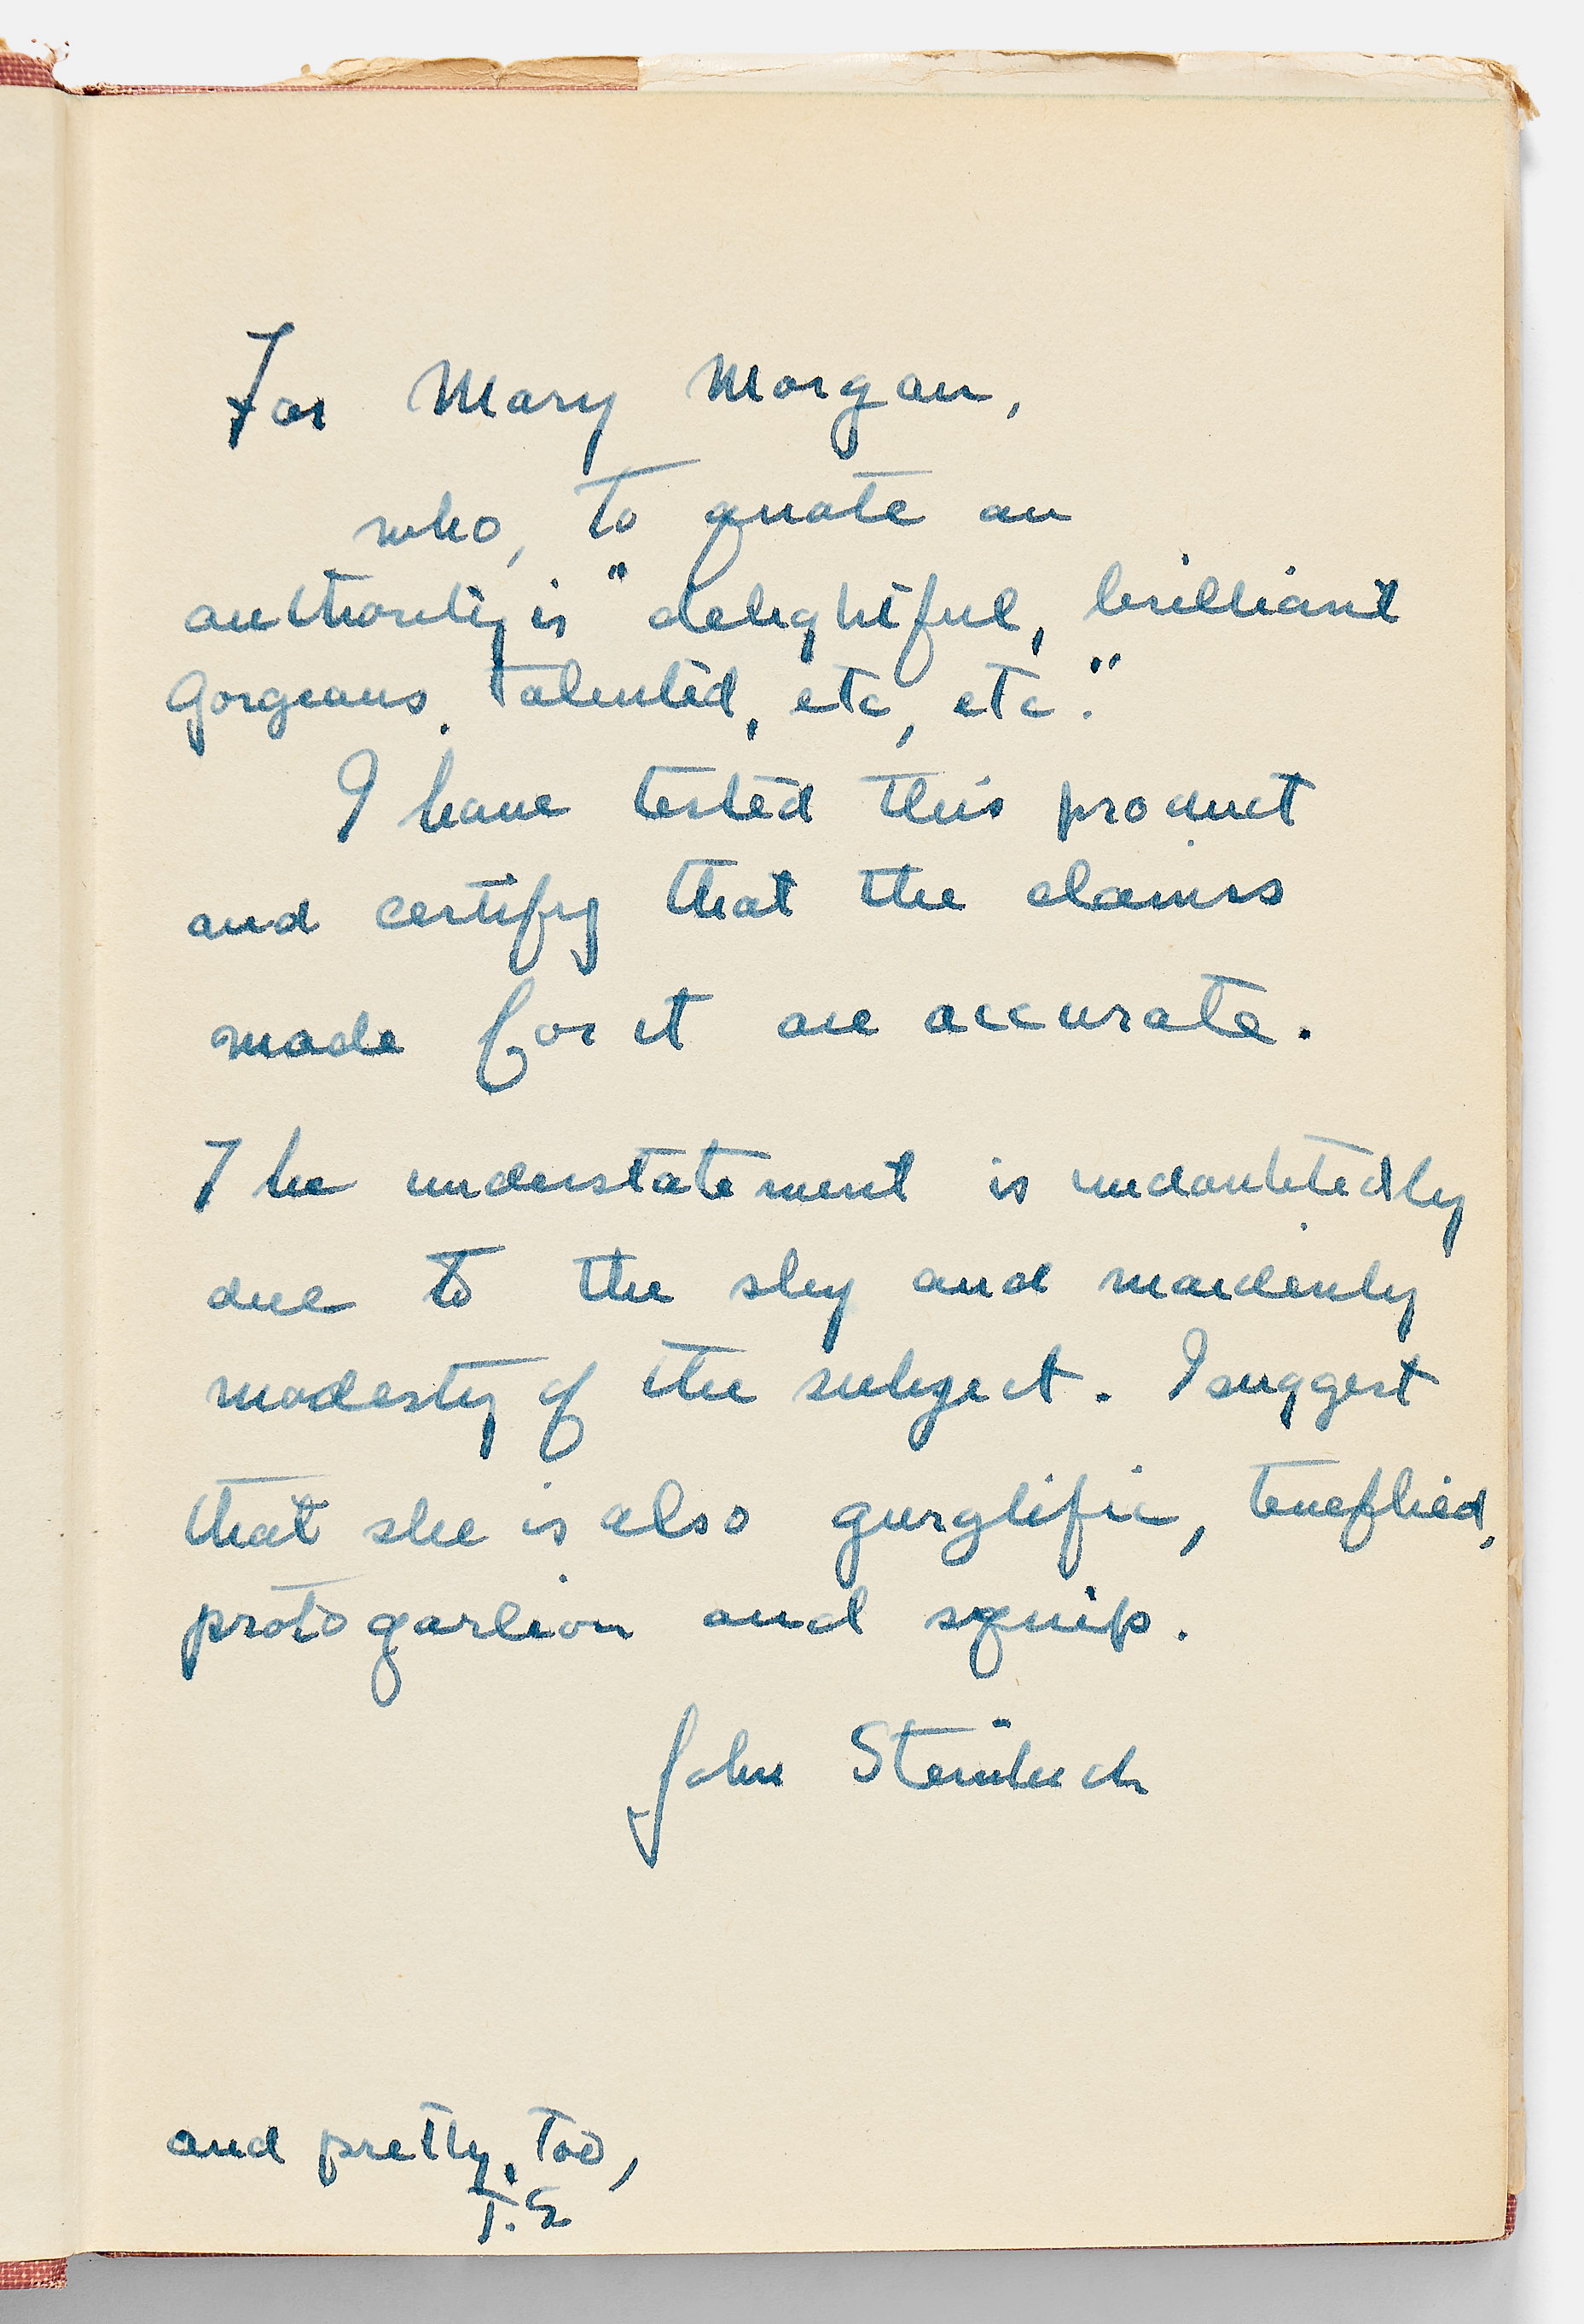 For Mary Morgan,
who, to quote an
authority is "delightful, brilliant
Gorgeous, talented, etc, etc."
I have tested this product
and certify that the claims
made for it are accurate.
The understatement is undoubtedly
due to the shy and maidenly
modesty of the subject. I suggest
that she is also gurglific,
protogarlion and squip.
John Steinbeck
and pretty, too,